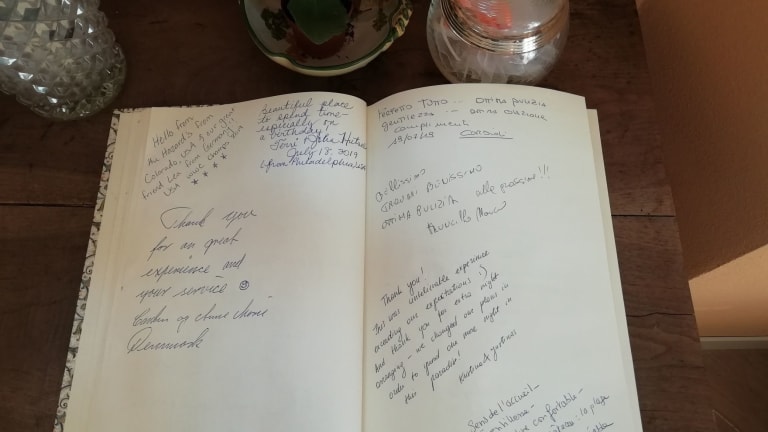 Hello from
the from
Colorado, USA & our great
friend Lea from Germany!
USA
beautiful place
to spend time -
especially on
a birthday!
Terri & John
July 18, 2019
from Philadelphia, USA
Thank you
for an great
experience and
your service
Denmark
Tutto... ottima pulizia
gentilezza - ottima colazione
complimenti
19/07/19
Bellissimo
Benissimo
ottima pulizia alla prossima!!
Thank you!
This was unbelievable experience
exceeding our expectations :)
And thank you for extra night
arranging - we changed our plans in
order to spend one more night in
this paradise!
Sens de l'accueil -
confortable -
: la plage